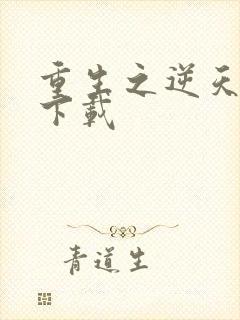 重生之逆天
下载
青道生